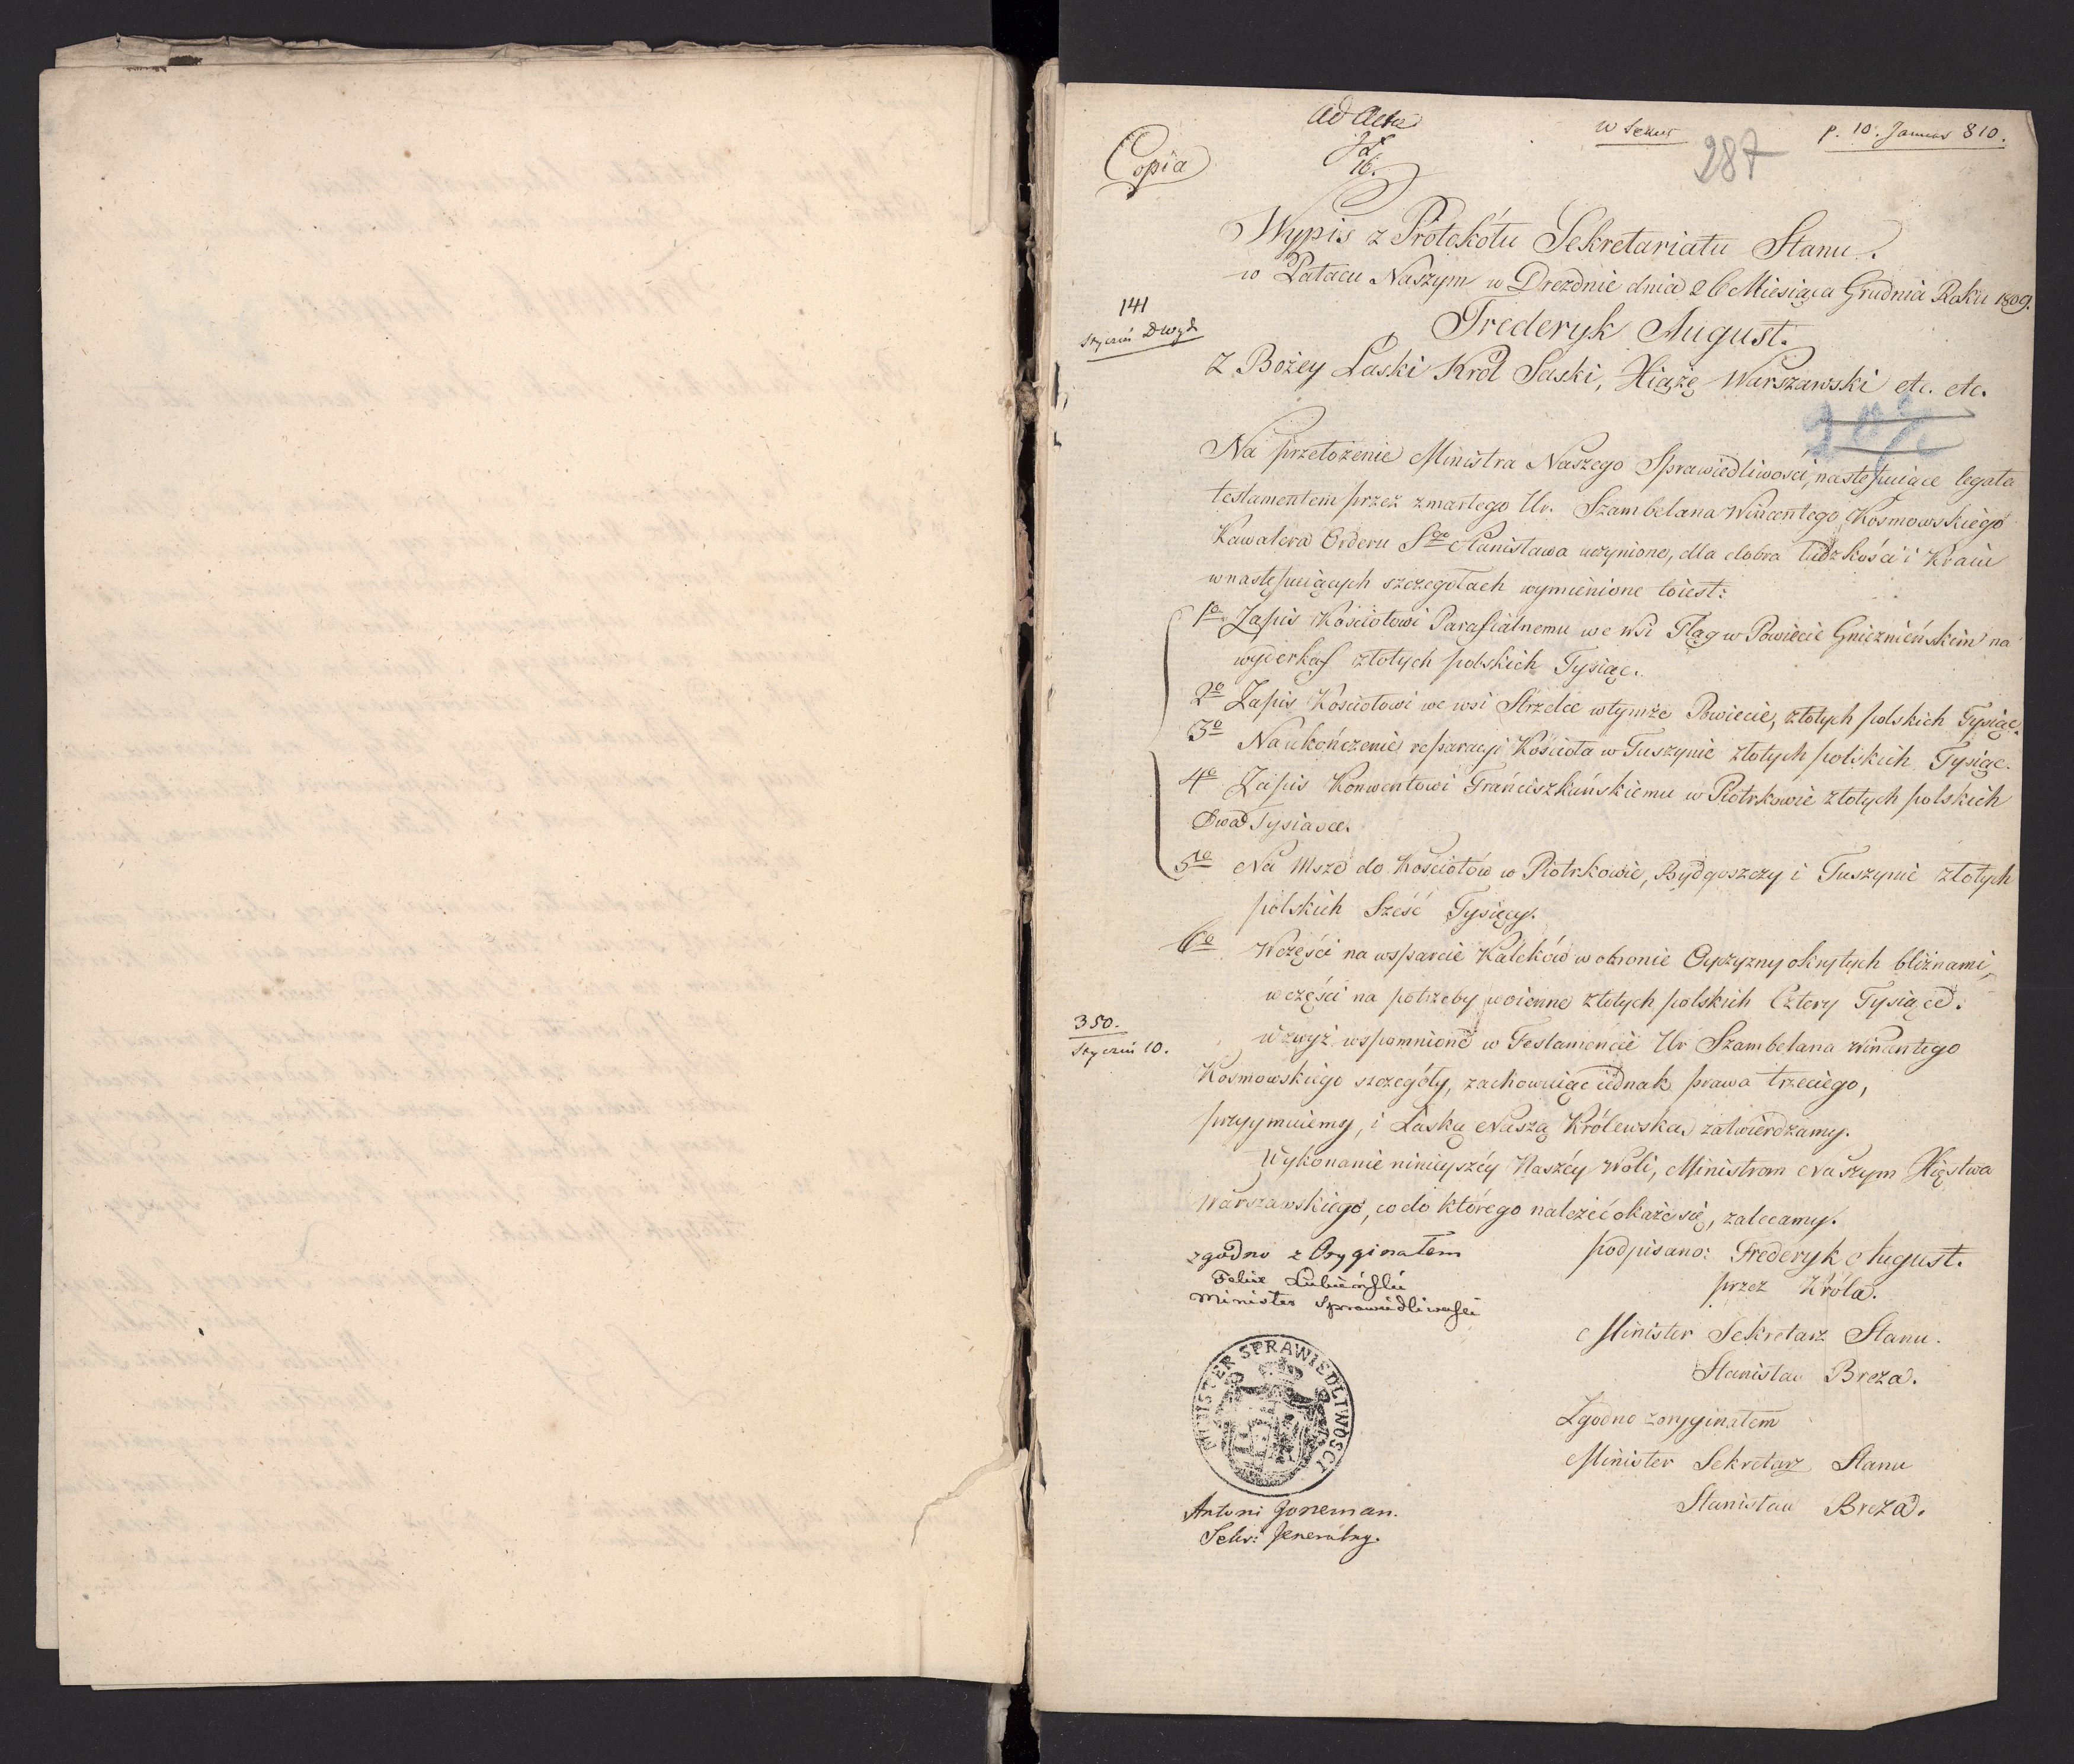 ad Acta
16.
Copia
p. 10. Januar 810.
287
Wypis z Protokółu Sekretariatu Stanu.
w Pałacu Naszym w Dreznie dnia 26 Miesiąca Grudnia Roku 1809.
141
Styczeń
Frederyk August.
Z Bożey Łaski Król Saski, Xiążę Warszawski etc. etc.
Na przełożenie Ministra Naszego Sprawiedliwości, następuiące legata
testamentem przez zmarłego Ur. Szambelana Wincentego Kosmowskiego
Kawalera Orderu Sgo Stanisława uczynione, dla dobra ludzkości i Kraiu
w następuiących szczegółach wymienione to iest:
1o Zapis Kościołowi Parafialnemu we wsi Fląg w Powiecie Gnieznieńskim na
wyderkaf złotych polskich Tysiąc.
2o Zapis Kościołowi we wsi Strzelce w tymże Powiecie, złotych polskich Tysiąc.
3o Na ukończenie reparacyi Kościoła w Tuszynie złotych polskich Tysiąc.
4o Zapis Konwentowi Franciszkańskiemu w Piotrkowie złotych polskich
Dwa Tysiące.
5o Na Msze do Kościołów w Piotrkowie, Bydgoszczy i Tuszynie złotych
polskich Sześć Tysięcy.
6o W części na wsparcie Kaleków w obronie Oyczyzny okrytych bliznami,
w części na potrzeby woienne złotych polskich Cztery Tysiące.
350.
Styczeń 10.
wzwyż wspomnione w Testamencie Ur Szambelana Wincentego
Kosmowskiego szczegóły, zachowuiąc iednak prawa trzeciego,
przyymuiemy, i Łaską Naszą Królewską zatwierdzamy.
Wykonanie ninieyszéy Naszéy Woli, Ministrom Naszym Xięstwa
Warszawskiego, co do którego należeć okaże się, zalecamy.
zgodno z Oryginałem
Felix Łubieński
Minister Sprawiedliwości
podpisano: Frederyk August.
przez Króla.
Minister Sekretarz Stanu.
Stanisław Breza.
MINISTER SPRAWIEDLIWOSCI
Zgodno z oryginałem
Minister Sekretarz Stanu
Stanisław Breza.
Antoni Joneman.
Sekr: Jeneralny.